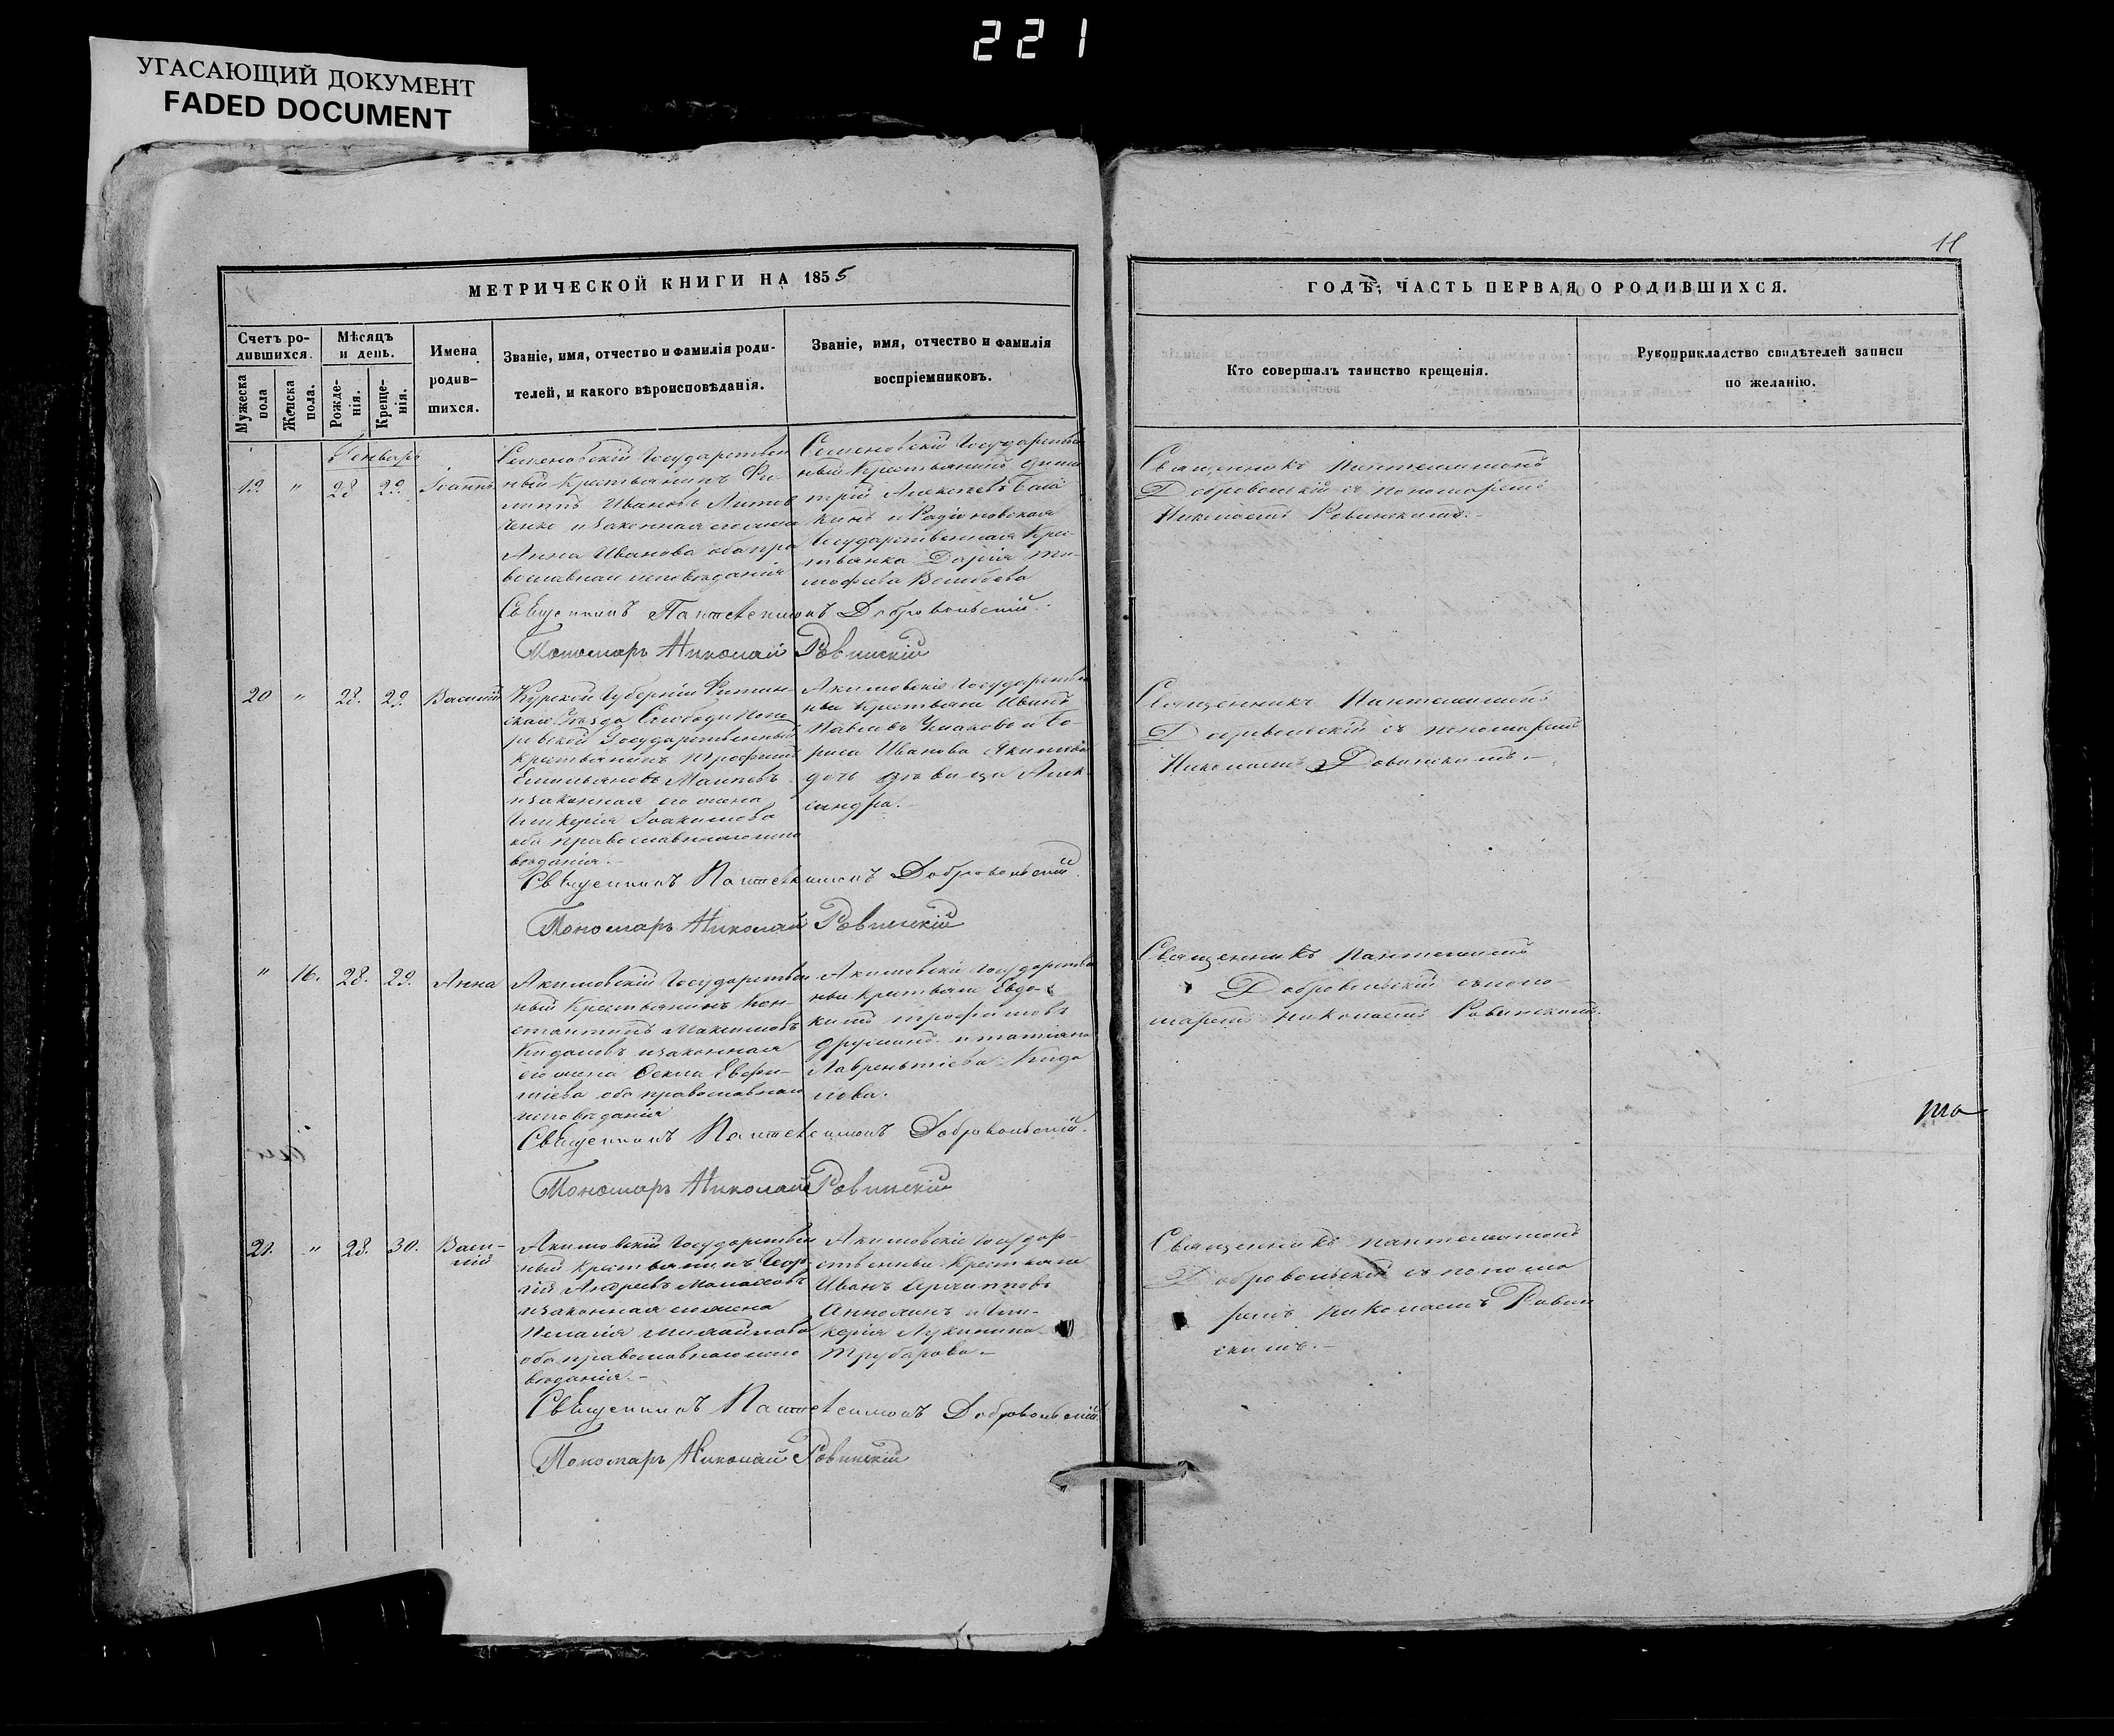 221
УГАСАЮЩИЙ ДОКУМЕНТ
FADED DOCUMENT
МЕТРИЧЕСКОЙ КНИГИ НА 1855
Счетъ ро-
дившихся.
Мѣсяцъ
и день.
Имена
родив-
шихся.
Званіе, имя, отчество и фамилія роди-
телей, и какого вѣроисповѣданія.
Званіе, имя, отчество и фамилія
воспріемниковъ.
Мужеска
пола
Женска
пола.
Рожде-
нія.
Креще-
нія.
Генваръ
19. " 28 29. Іоаннъ
Семеновскій Государствен
ный Крестьянинъ Фи-
липпъ Ивановъ Литов
ченко и законная его жена
Анна Иванова оба пра
вославнаго исповѣданія
Семеновскій Государствен
ный Крестьянинъ Дими
трій Алексѣевъ
и Радіоновская
Государственная Кре-
стьянка Дарія Ти-
мофеева
Священникъ Пантелеимонъ Добровольскій.
Пономарь Николай Ровинскій
20 " 28. 29. Василій
Курской Губерніи
скаго Уѣзда Слободы
Государственный
крестьянинъ Трофимъ
Емельяновъ
и законная его жена
Гликерія Іоакимова
оба православнаго испо
вѣданія.-
Акимовскіе Государствен
ные Крестьяне Иванъ
Павловъ и Бо-
риса Иванова
дочь дѣвица Алек-
сандра.-
Священникъ Пантелеимонъ Добровольскій.
Пономарь Николай Ровинскій
" 16. 28. 29. Анна
Акимовскій Государствен
ный Крестьянинъ Кон-
стантинъ Максимовъ
Кидаловъ и законная
его жена Ѳекла Евфи-
міева оба православнаго
исповѣданія
Акимовскіе Государствен
ные крестьяне Евдо-
кимъ Трофимовъ
и Татіана
Лаврентіева Кида
лова.
Священникъ Пантелеимонъ Добровольскій.
Пономарь Николай Ровинскій
21. " 28. 30. Васи-
лій
Акимовскій Государствен
ный Крестьянинъ Геор-
гій Андреевъ
и законная его жена
Пелагія Михайлова
оба православнаго испо
вѣданія.-
Акимовскіе Государ-
ственные Крестьяне
Иванъ Архиповъ
и Гли-
керія Лукинина
Трубарова.-
Священникъ Пантелеимонъ Добровольскій.
Пономарь Николай Ровинскій
11
ГОДЪ, ЧАСТЬ ПЕРВАЯ О РОДИВШИХСЯ.
Кто совершалъ таинство крещенія.
Рукоприкладство свидѣтелей записи
по желанію.
Священникъ Пантелеимонъ
Добровольскій съ пономаремъ
Николаемъ Ровинскимъ.-
Священникъ Пантелеимонъ
Добровольскій съ пономаремъ
Николаемъ Ровинскимъ.-
Священникъ Пантелеимонъ
Добровольскій съ поно-
маремъ Николаемъ Ровинскимъ.
Священникъ Пантелеимонъ
Добровольскій съ понома
ремъ Николаемъ Ровин
скимъ.-